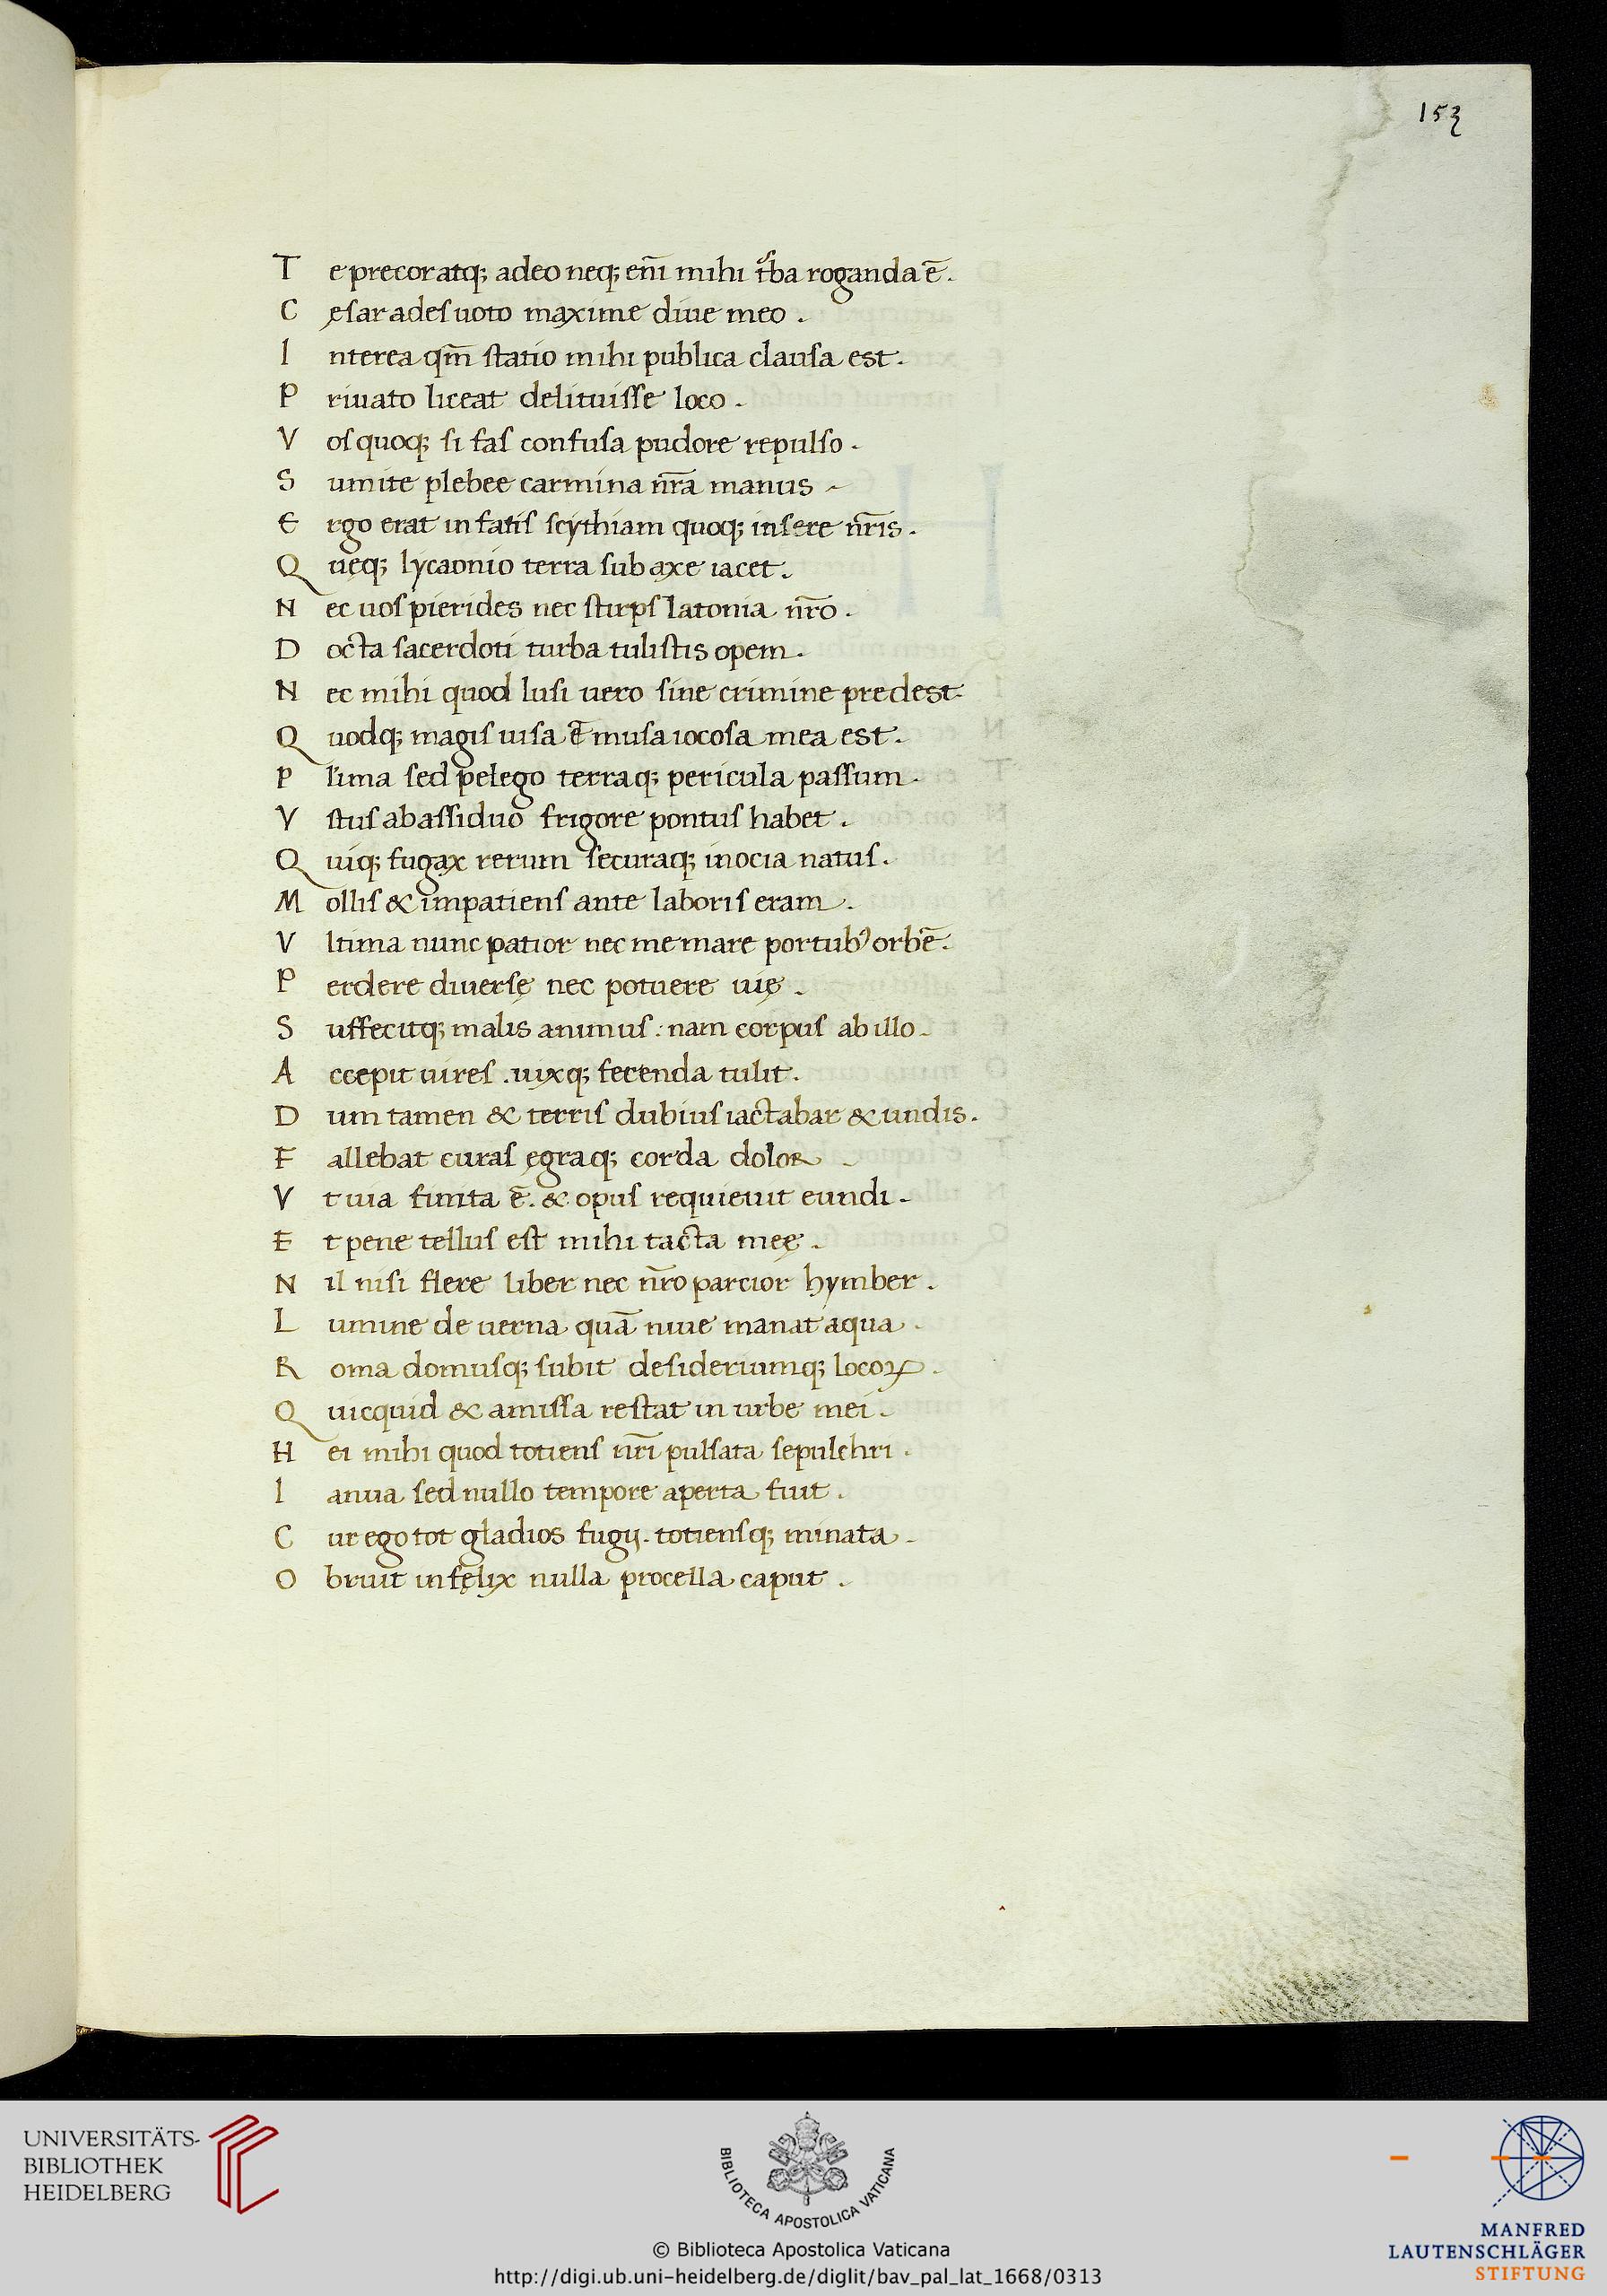 153
T e precor atq; adeo neq; enı̄ mihi t̄ba roganda ē.
C ęsar ades uoto maxime diue meo.
I nterea qm̄ statio mihi publica clausa est.
P riuato liceat delituisse loco.
V os quoq; si fas confusa pudore repulso.
S umite plebee carmina nr̄a manus
E rgo erat in fatis scythiam quoq; insere nr̄is.
Q ueq; lycaonio terra sub axe iacet.
N ec uos pierides nec stirps latonia nr̄o.
D octa sacerdoti turba tulistis opem.
N ec mihi quod lusi uero sine crimine predest.
Q uodq; magis uisa ē musa iocosa mea est.
P l'ima sed pelego terraq; pericula passum.
V stus ab assiduo frigore pontus habet.
Q uiq; fugax rerum securaq; in ocia natus.
M ollis & impatiens ante laboris eram.
V ltima nunc patior nec me mare portub' orbē.
P erdere diuersę nec potuere uię.
S uffecitq; malis animus: nam corpus ab illo.
A ccepit uires. uixq; ferenda tulit.
D um tamen & terris dubius iactabar & undis.
F allebat curas ęgraq; corda dolor.
V t uia finita ē. & opus requieuit eundi.
E t pene tellus est mihi tacta meę.
N il nisi flere liber nec nr̄o parcior hymber.
L umine de uerna quā niue manat aqua.
R oma domusq; subit desideriumq; locoꝝ.
Q uicquid & amissa restat in urbe mei.
H ei mihi quod totiens nr̄i pulsata sepulchri.
I anua sed nullo tempore aperta fuit.
C ur ego tot gladios fugij. totiensq; minata.
O bruit infęlix nulla procella caput.
UNIVERSITÄTS-
BIBLIOTHEK
HEIDELBERG
BIBLIOTECA APOSTOLICA VATICANA
© Biblioteca Apostolica Vaticana
http://digi.ub.uni-heidelberg.de/diglit/bav_pal_lat_1668/0313
MANFRED
LAUTENSCHLÄGER
STIFTUNG